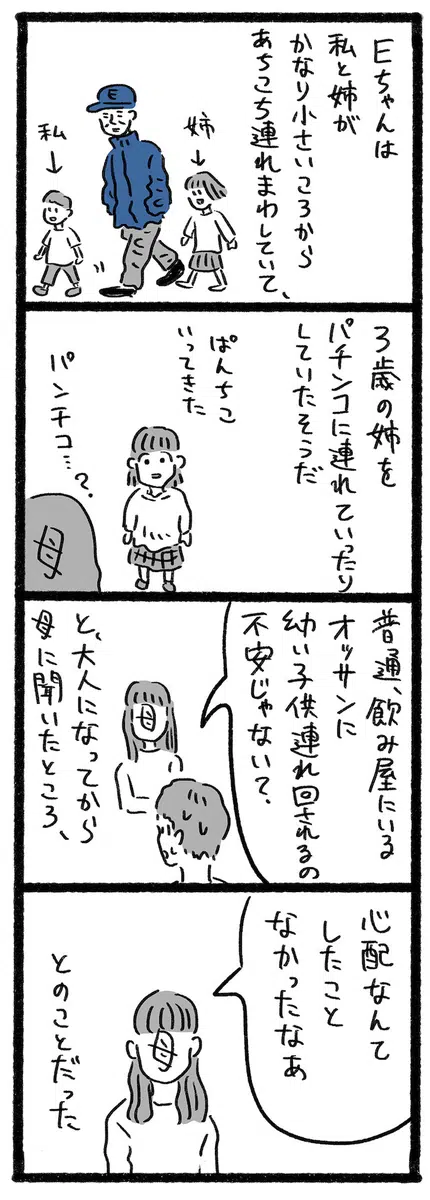 Eちゃんは
私と姉が
かなり小さいころから
あちこち連れまわしていて、
姉
私
E
3歳の姉を
パチンコに連れていったり
していたそうだ
ぱんちこ
いってきた
パンチコ…?
母
普通、飲み屋にいる
オッサンに
幼い子供連れ回されるの
不安じゃない?
母
と、大人になってから
母に聞いたところ、
心配なんて
したこと
なかったなあ
母
とのことだった